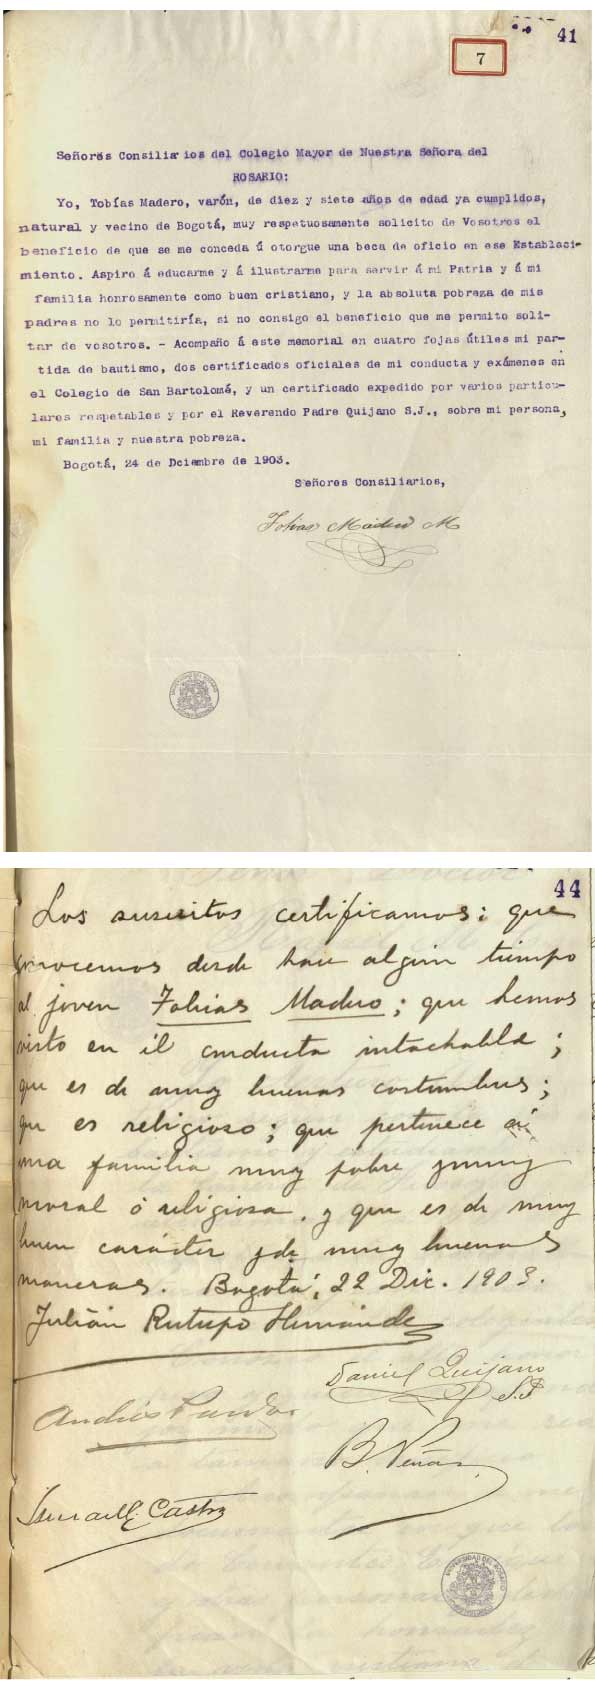 41
7
Señores Consiliarios del Colegio Mayor de Nuestra Señora del
ROSARIO:
Yo, Tobías Madero, varón, de diez y siete años de edad ya cumplidos,
natural y vecino de Bogotá, muy respetuosamente solicito de Vosotros el
beneficio de que se me conceda ú otorgue una beca de oficio en ese Estableci-
miento. Aspiro á educarme y á ilustrarme para servir á mi Patria y á mi
familia honrosamente como buen cristiano, y la absoluta pobreza de mis
padres no lo permitiría, si no consigo el beneficio que me permito soli-
tar de vosotros. - Acompaño á este memorial en cuatro fojas útiles mi par-
tida de bautismo, dos certificados oficiales de mi conducta y exámenes en
el Colegio de San Bartolomé, y un certificado expedido por varios particu-
lares respetables y por el Reverendo Padre Quijano S.J., sobre mi persona,
mi familia y nuestra pobreza.
Bogotá, 24 de Dciembre de 1903.
Señores Consiliarios,
Tobias Madero M
UNIVERSIDAD DEL ROSARIO
44
Los suscritos certificamos: que
conocemos desde hace algún tiempo
al joven Tobias Madero; que hemos
visto en él conducta intachable;
que es de muy buenas costumbres;
que es religioso; que pertenece a
una familia muy pobre y muy
moral é religiosa, y que es de muy
buen carácter y de muy buenas
maneras. Bogotá, 22 Dic. 1903.
Julián Restrepo Hernández
Daniel Quijano
S.J
Andrés Pardo
B. Peña
Ismael E. Castro
UNIVERSIDAD DEL ROSARIO